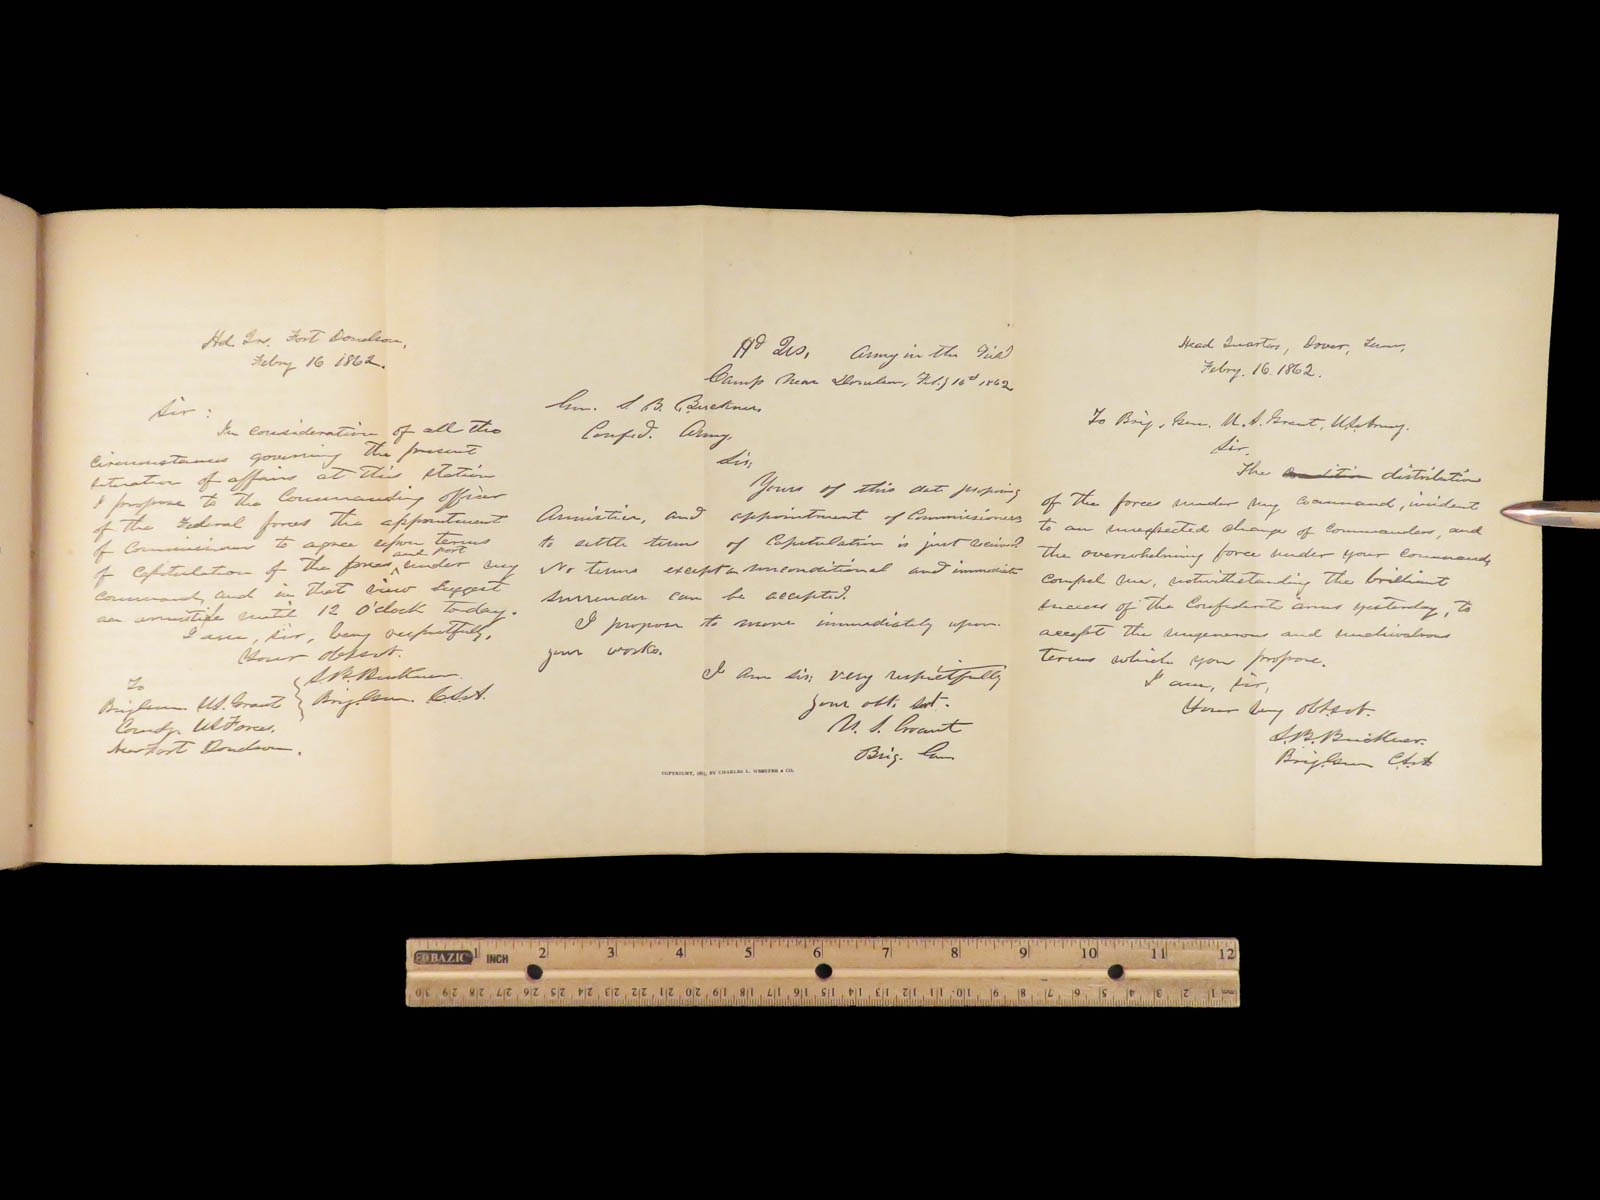 Hd. Qrs. Fort Donelson,
Febry 16 1862.
Sir:
In consideration of all the
circumstances governing the present
situation of affairs at this station
I propose to the Commanding officer
of the Federal forces the appointment
of Commissioners to agree upon terms
of capitulation of the forces and post under my
command, and in that view suggest
an armistice until 12 O'clock today.
I am, sir, very respectfully,
Your obt. svt.
S. B. Buckner.
Brig. Gen. C.S.A.
To
Brig. Gen. U.S. Grant
Comdg. US Forces.
Near Fort Donelson.
Hd Qrs, Army in the Field
Camp Near Donelson, Feby 16th 1862
Gen. S. B. Buckner,
Confed. Army,
Sir;
Yours of this date proposing
Armistice, and appointment of Commissioners
to settle terms of Capitulation is just received.
No terms except an unconditional and immediate
surrender can be accepted.
I propose to move immediately upon
your works.
I am sir; very respectfully
your obt. svt.
U. S. Grant
Brig. Gen.
COPYRIGHT, 1885, BY CHARLES L. WEBSTER & CO.
Head Quarters, Dover, Tenn,
Febry. 16. 1862.
To Brig. Gen. U. S. Grant, U.S. Army.
Sir.
The condition distribution
of the forces under my command, incident
to an unexpected change of commanders, and
the overwhelming force under your command,
compel me, notwithstanding the brilliant
success of the Confederate arms yesterday, to
accept the ungenerous and unchivalrous
terms which you propose.
I am, sir,
Your very obt. svt.
S. B. Buckner.
Brig. Gen. C.S.A.
BAZIC INCH 1 2 3 4 5 6 7 8 9 10 11 12
30 29 28 27 26 25 24 23 22 21 20 19 18 17 16 15 14 13 12 11 10 9 8 7 6 5 4 3 2 1 mm